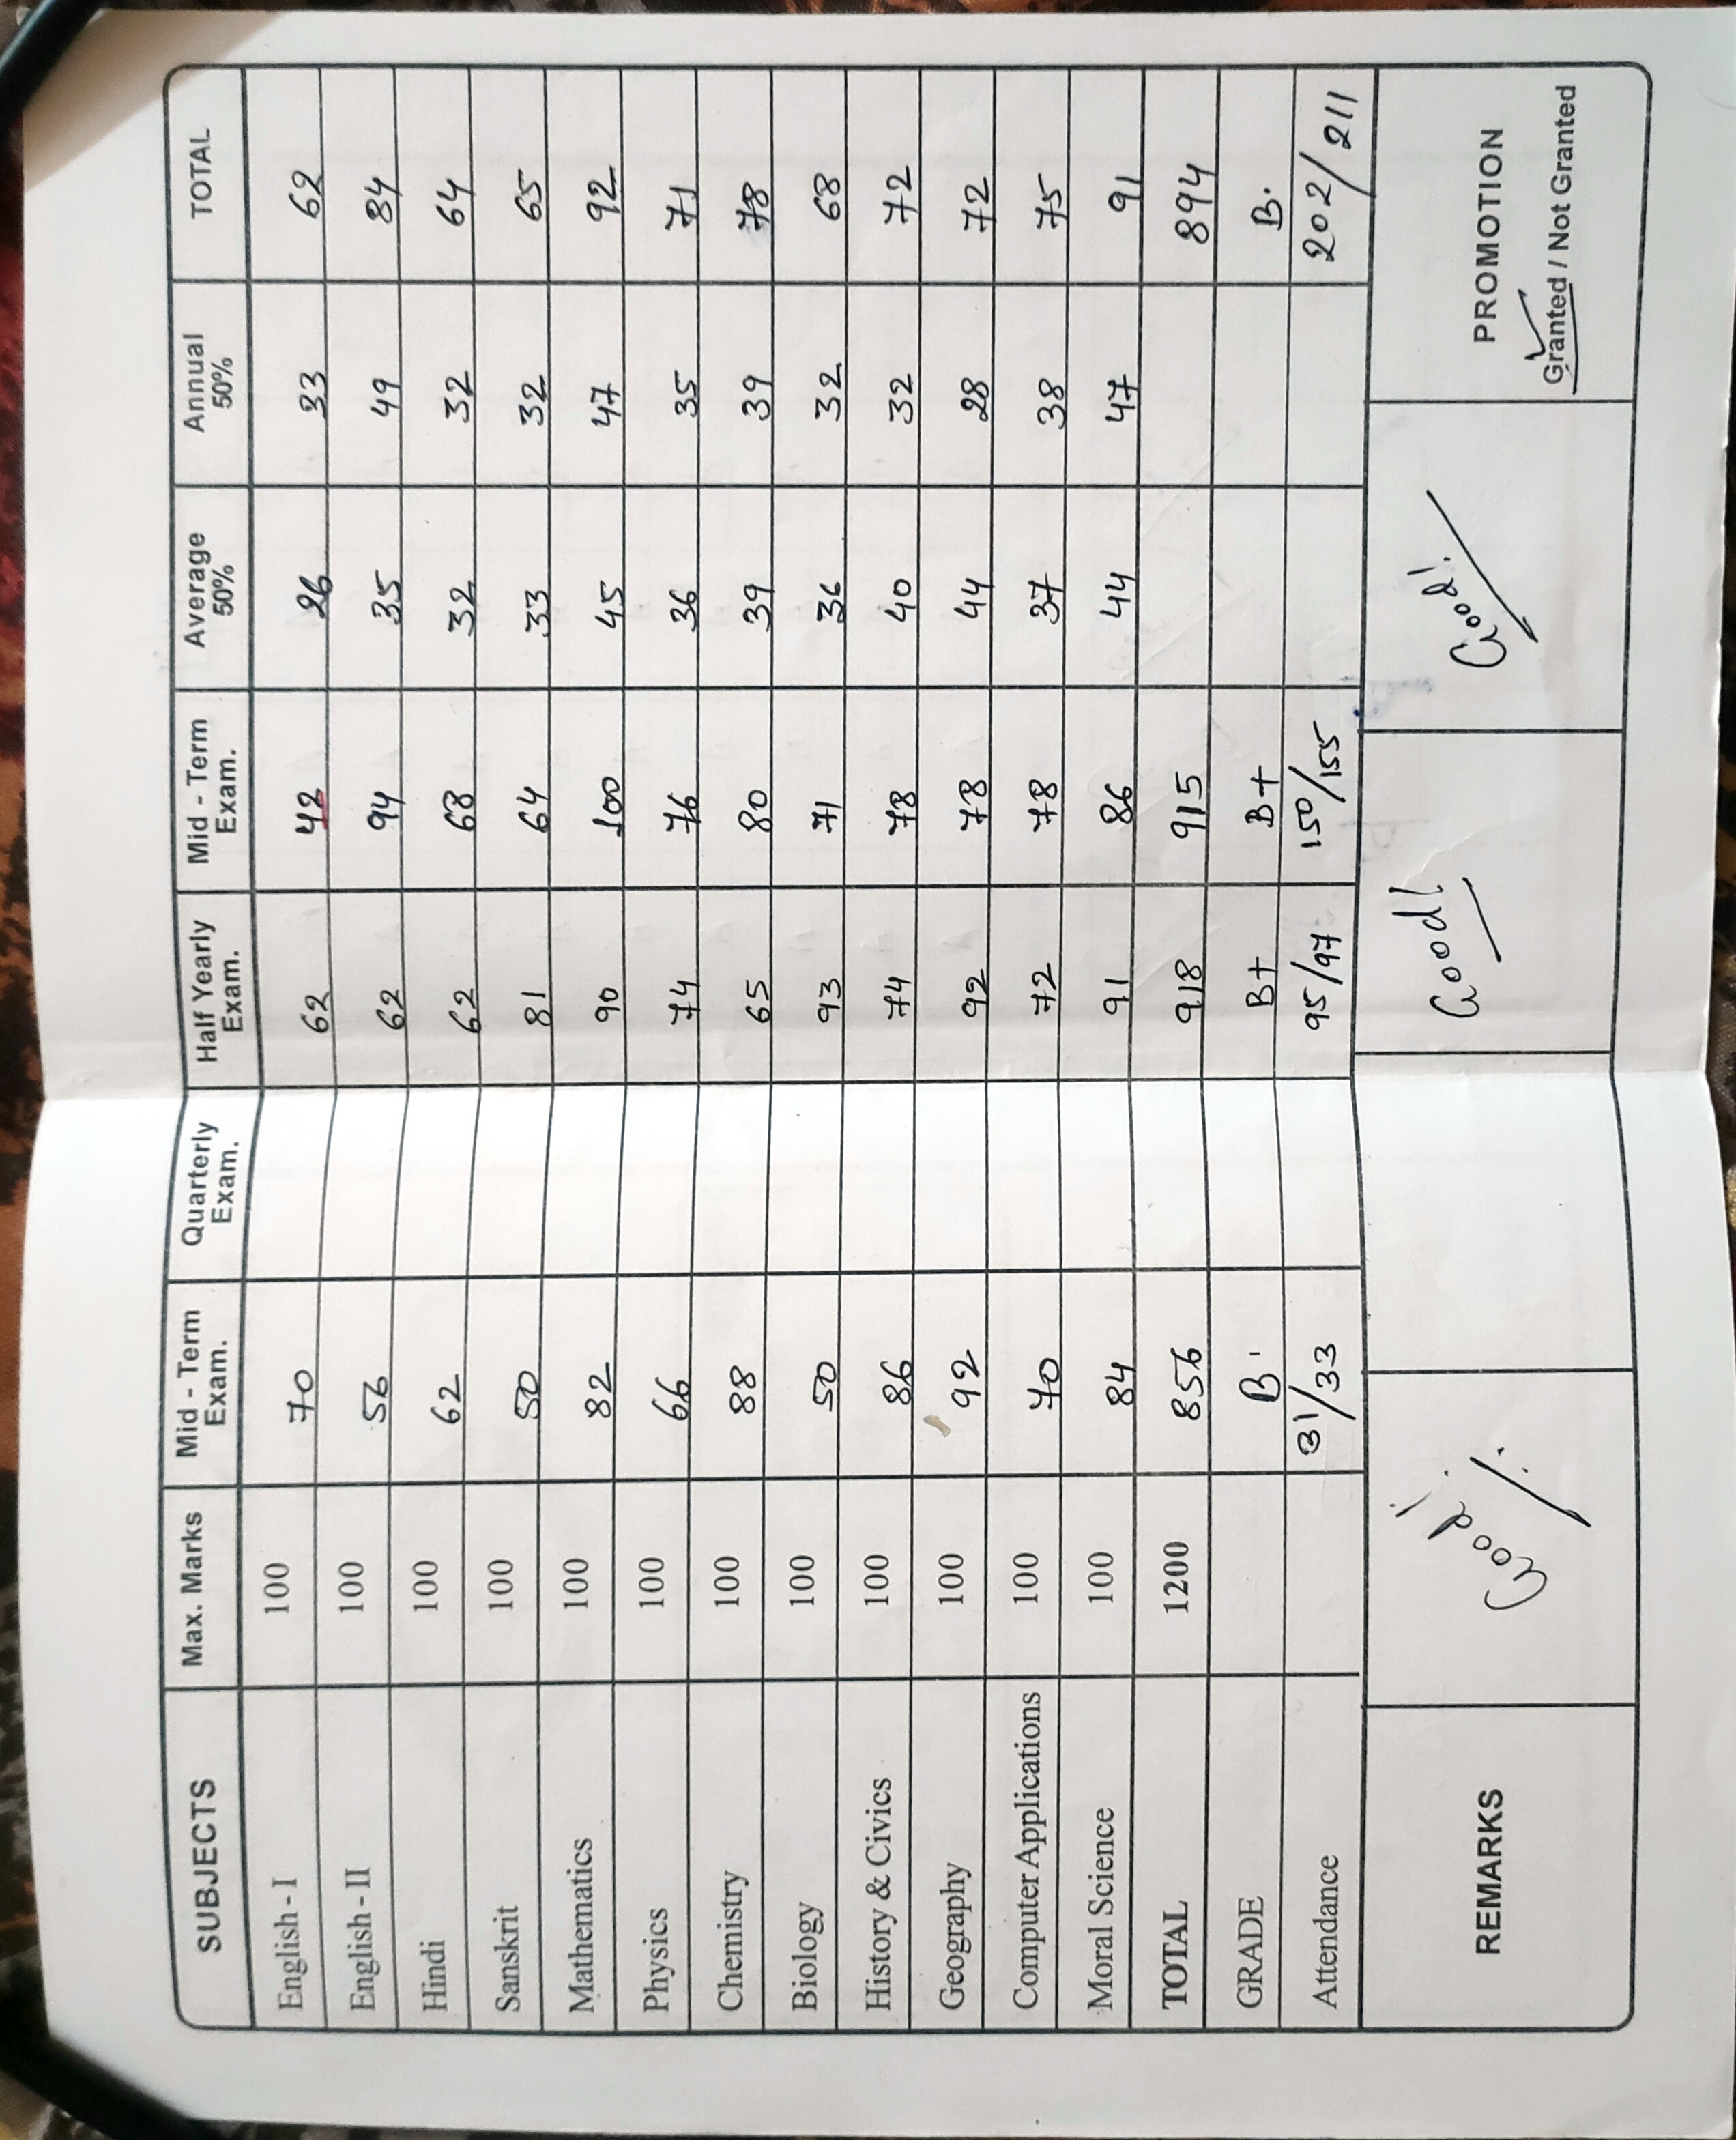 SUBJECTS Max. Marks Mid - Term Exam. Quarterly Exam. Half Yearly Exam. Mid - Term Exam. Average 50% Annual 50% TOTAL
English - I 100 70 62 42 26 33 62
English - II 100 56 62 94 35 49 84
Hindi 100 62 62 68 32 32 64
Sanskrit 100 50 81 64 33 32 65
Mathematics 100 82 90 100 45 47 92
Physics 100 66 74 76 36 35 71
Chemistry 100 88 65 80 39 39 78
Biology 100 50 93 71 36 32 68
History & Civics 100 86 74 78 40 32 72
Geography 100 92 92 78 44 28 72
Computer Applications 100 70 72 78 37 38 75
Moral Science 100 84 91 86 44 47 91
TOTAL 1200 856 918 915 894
GRADE B B+ B+ B.
Attendance 31/33 95/97 150/155 202/211
REMARKS Good! Good! Good! PROMOTION
Granted / Not Granted